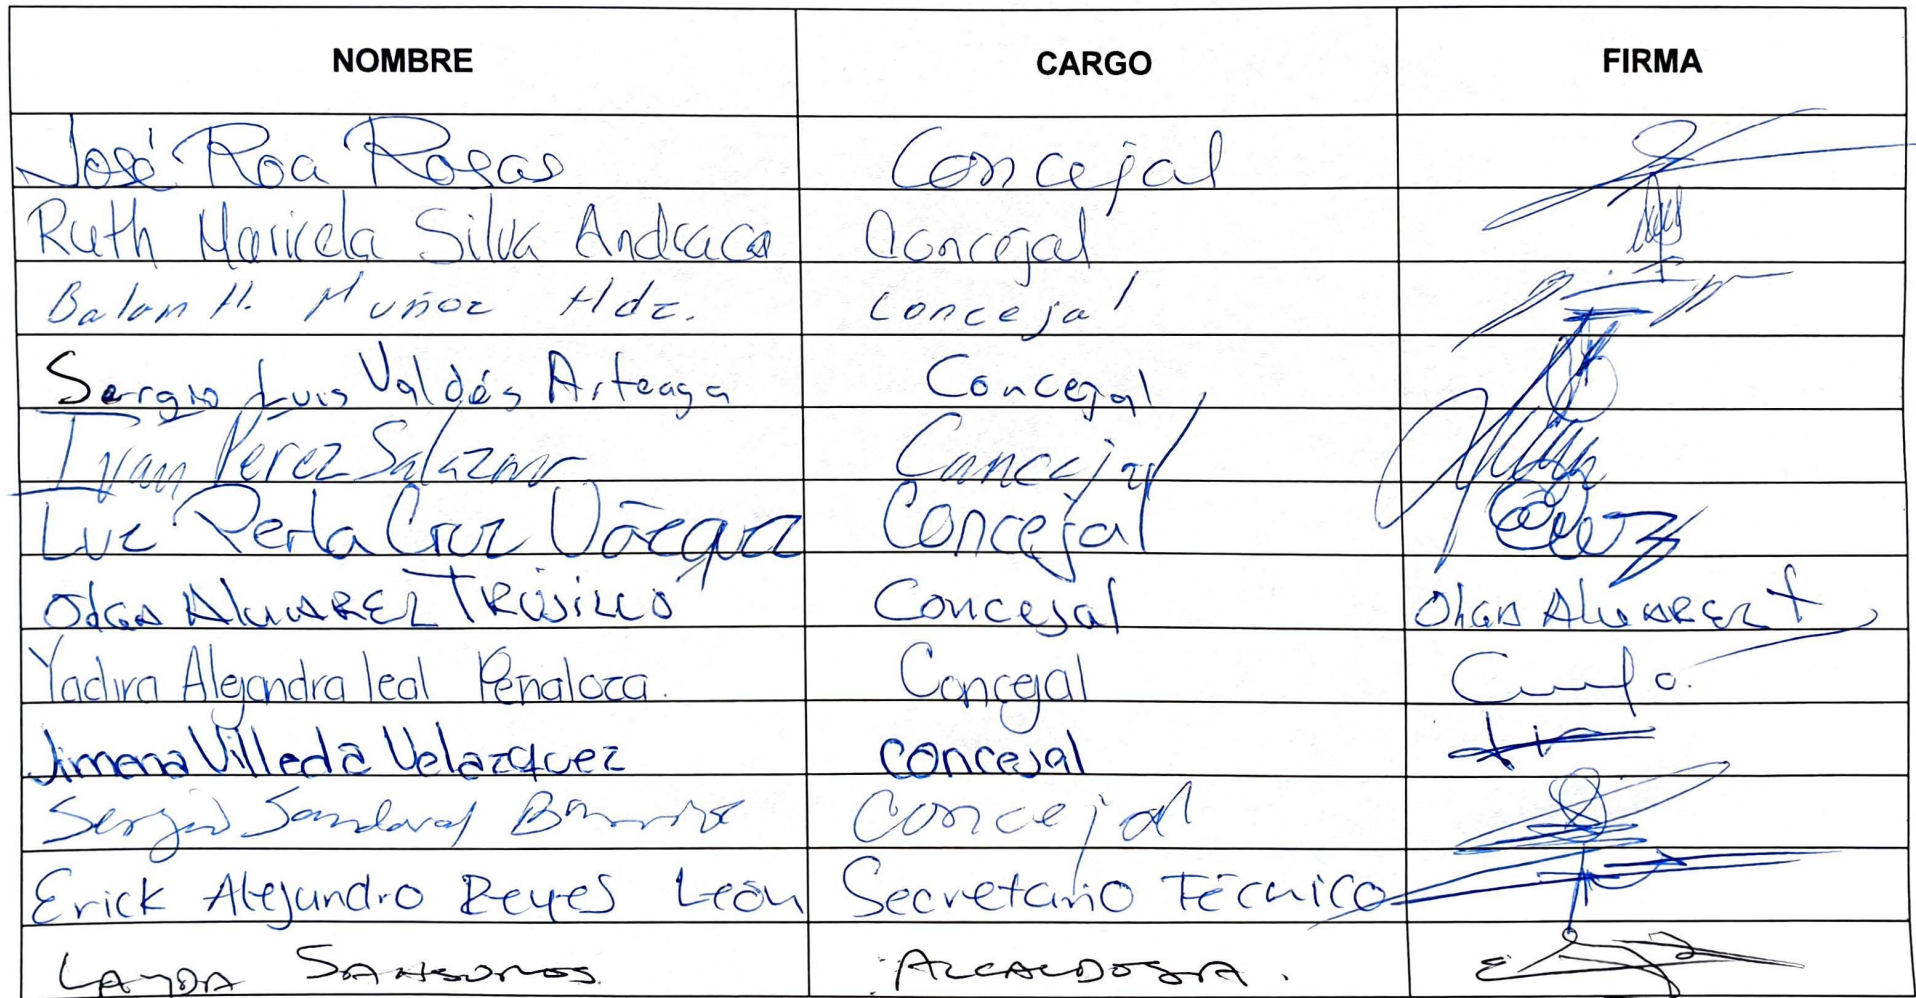 NOMBRE CARGO FIRMA
José Roa Rosas Concejal
Ruth Maricela Silva Andraca Concejal
Balam H. Muñoz Hdz. Concejal
Sergio Luis Valdés Arteaga Concejal
Ivan Perez Salazar Concejal
Luz Perla Cruz Vázquez Concejal
Olga ALVAREZ TRUJILLO Concejal Olga ALVAREZ T
Yadira Alejandra leal Peñaloza. Concejal
Jimena Villeda Velazquez concejal
Sergio Sandoval Concejal
Erick Alejandro Reyes León Secretario Técnico
LAYDA SANSORES ALCALDESA.